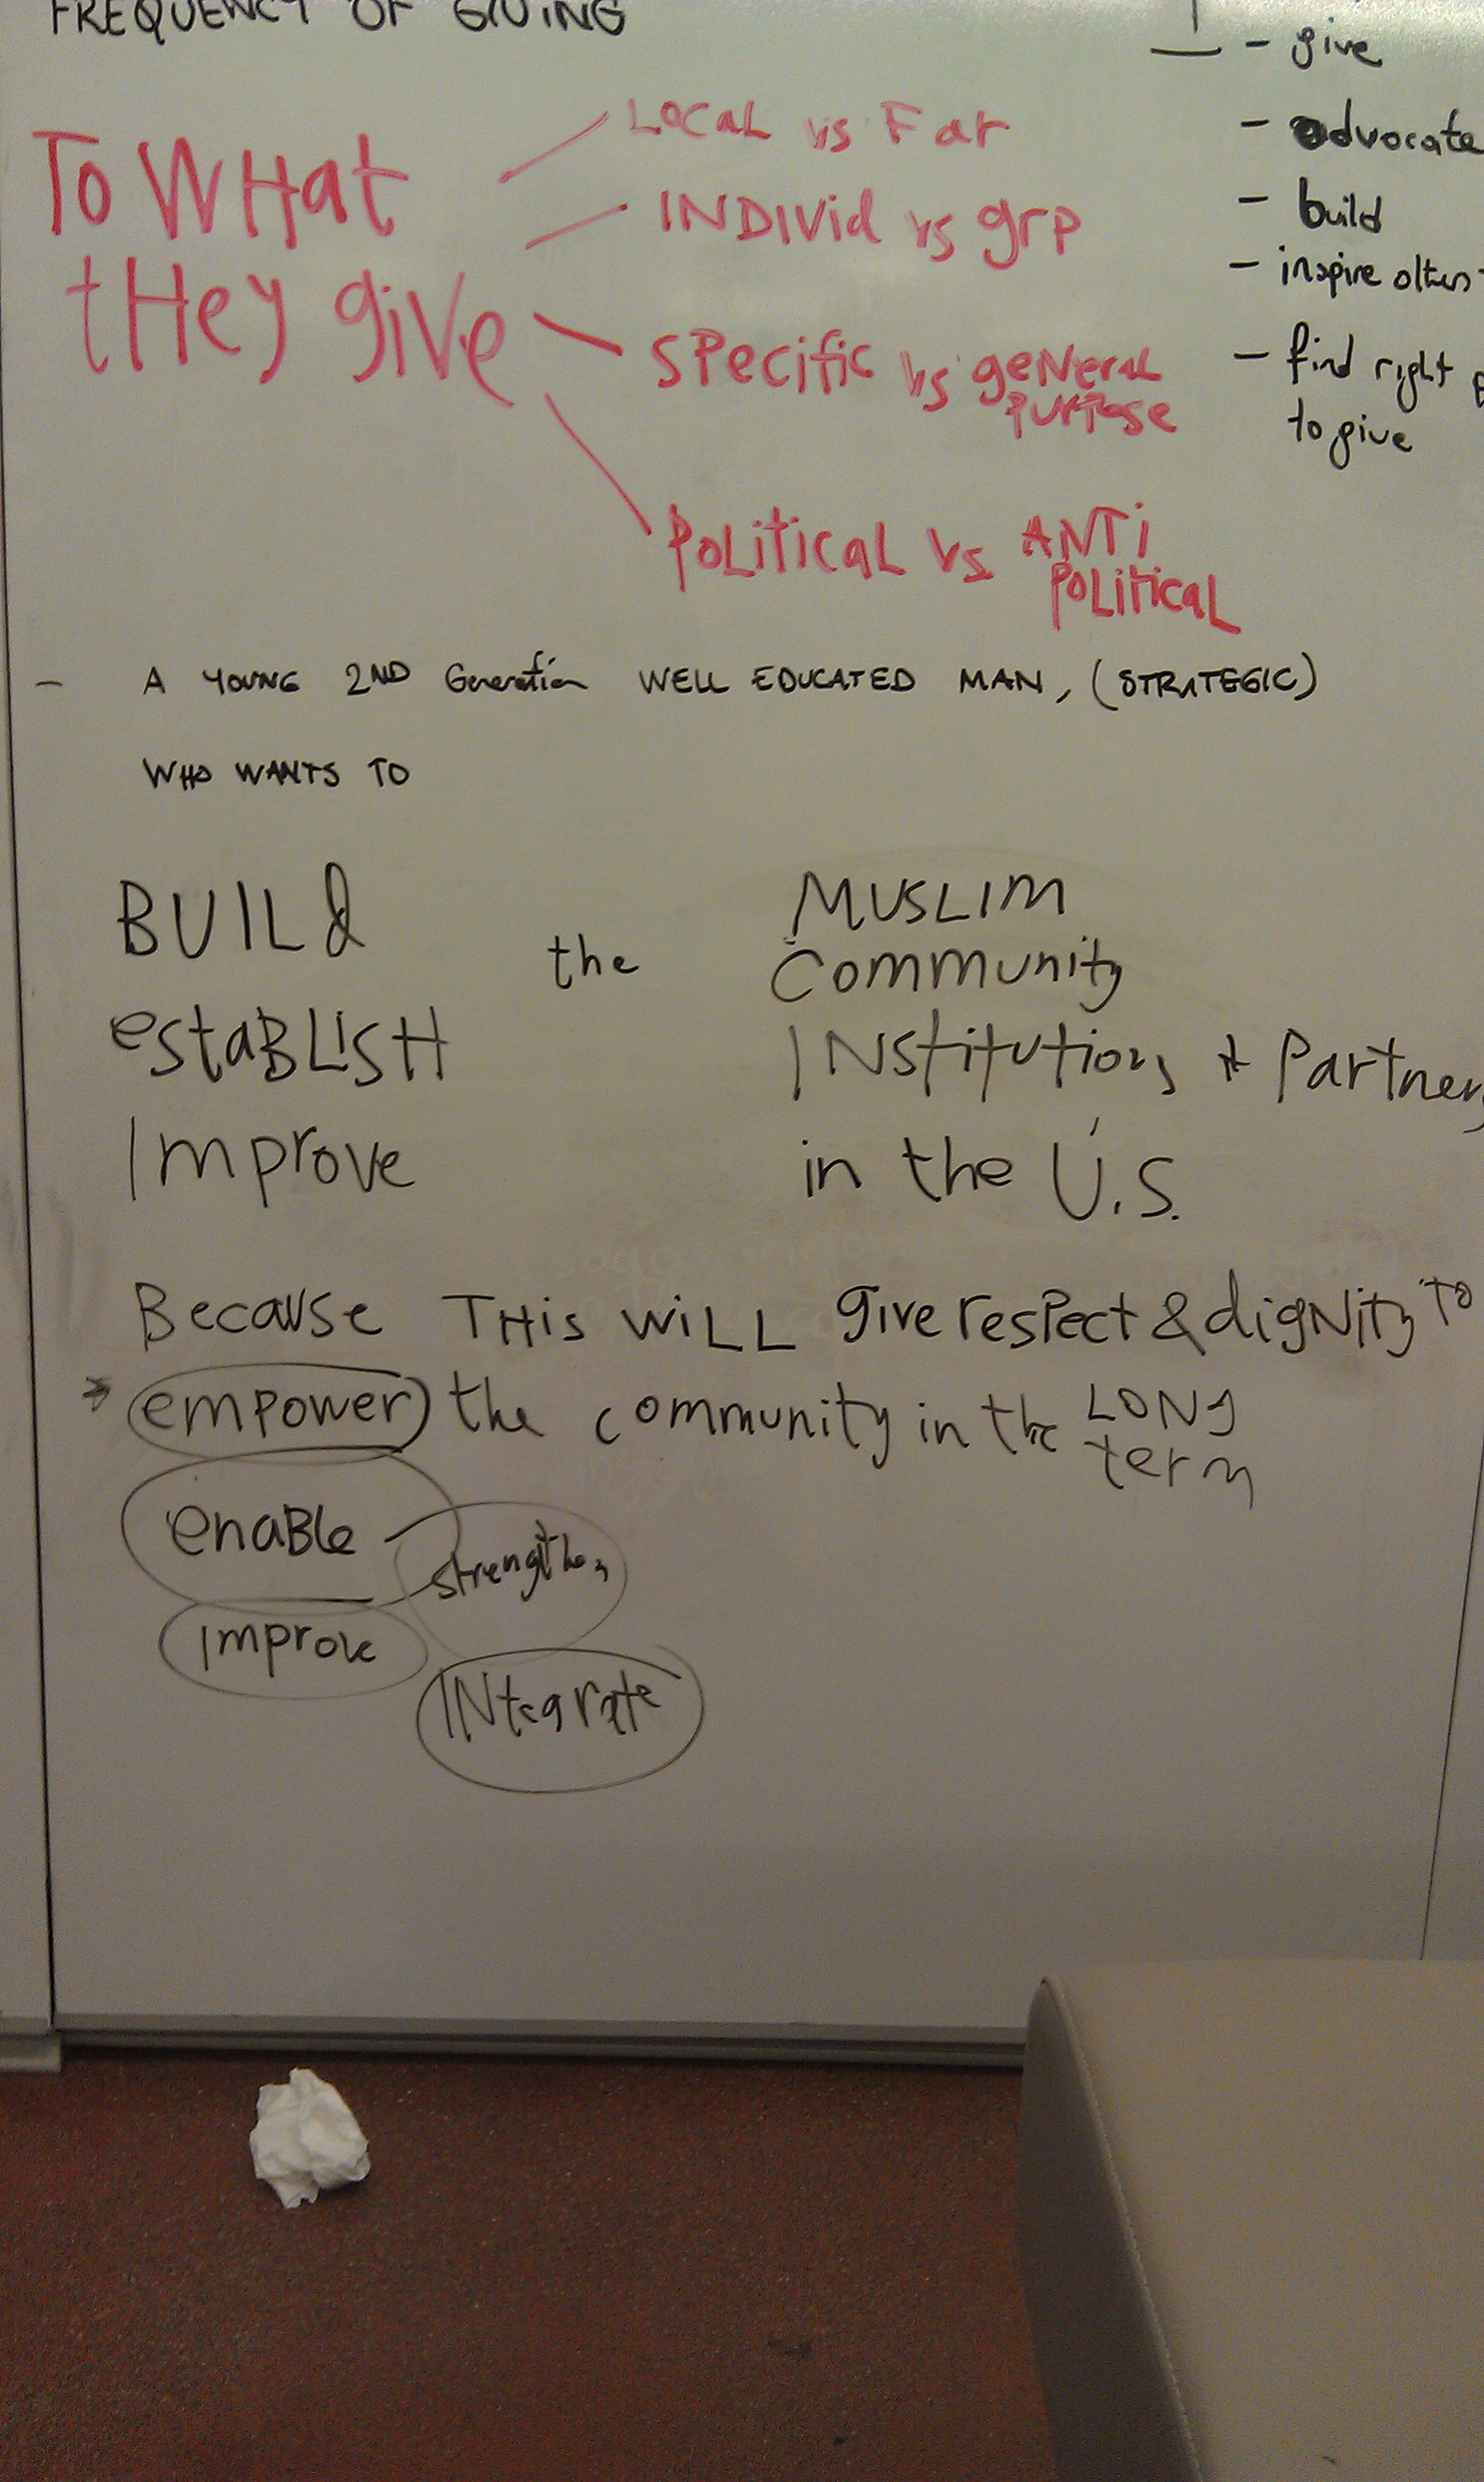 FREQUENCY OF GIVING
- give
- advocate
- build
- inspire others
- find right
to give
TO WHat
tHey giVe
LOCaL vs Far
INDIVid vs grp
SPecific vs geNeraL
PURPose
POLiticaL vs ANTi
POLiticaL
- A YOUNG 2ND Generation WELL EDUCATED MAN, (STRATEGIC)
WHO WANTS TO
BUILd the MUSLIM
Community
estaBLISH INstitutions + Partners
Improve in the U.S.
Because THis WiLL give resPect & digNity TO
empower the community in the LONg
term
enaBle
strengthen
Improve
INtegrate